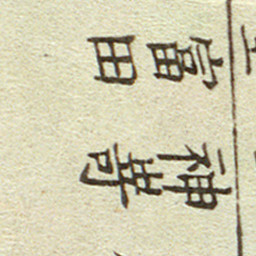 神嵜
富田